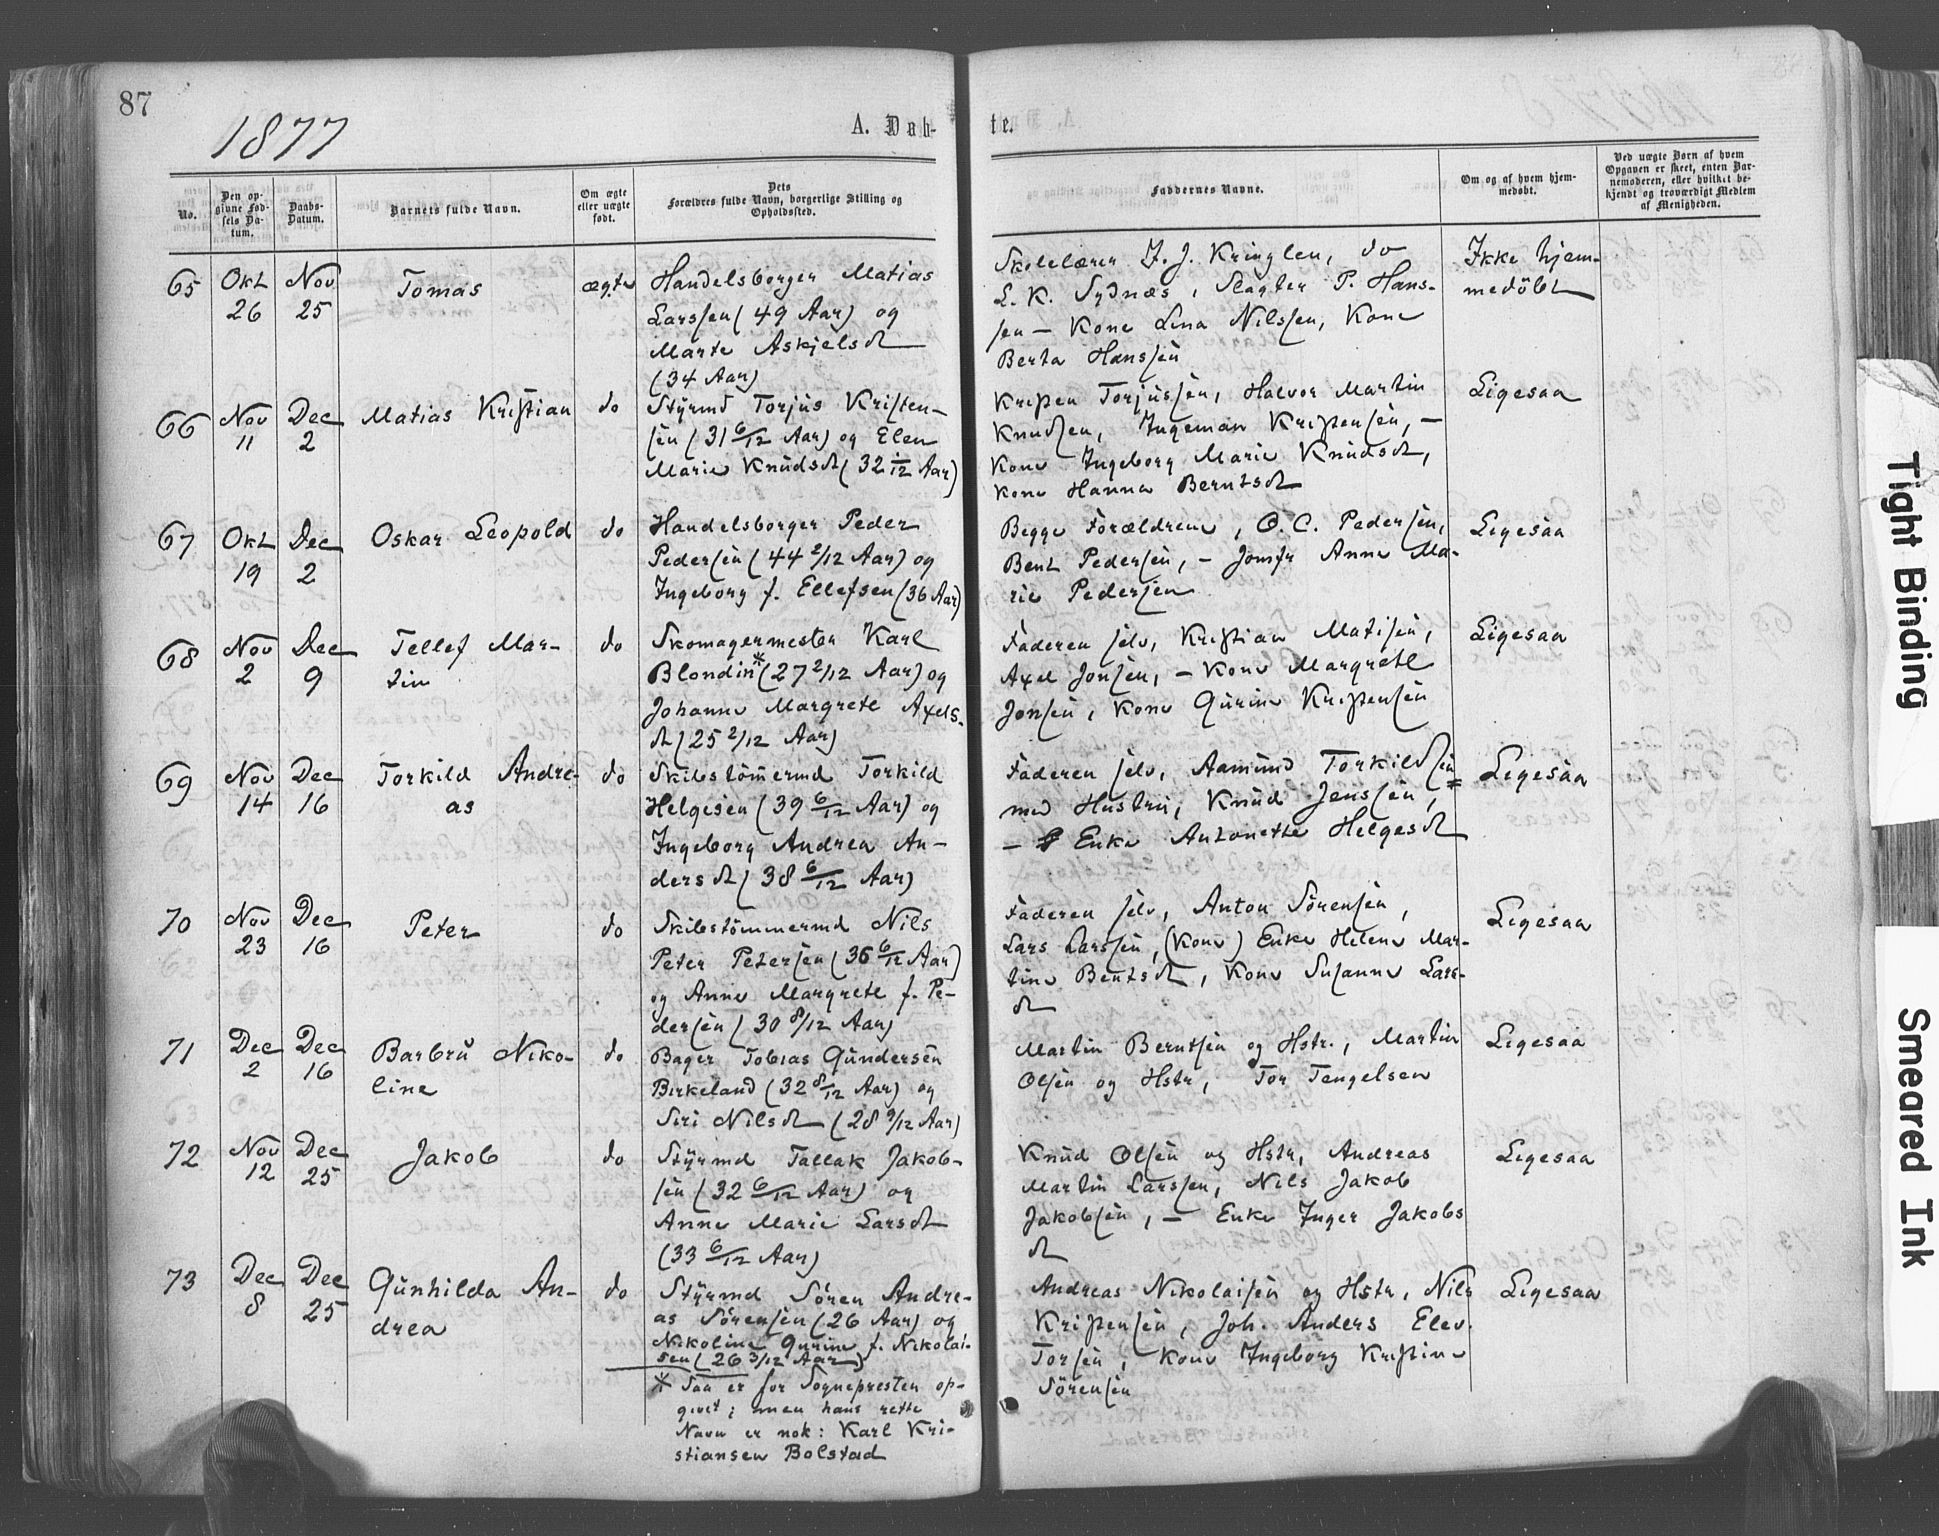 87
1877
A. Dåb-
te.
No.
Den op-
givne Fød-
sels Da-
tum.
Daabs-
Datum.
Barnets fulde Navn.
Om ægte
eller uægte
født.
Dets
Forældres fulde Navn, borgerlige Stilling og
Opholdssted.
Faddernes Navne.
Om og af hvem hjem-
medøbt.
Ved uægte Børn af hvem
Opgaven er skeet, enten Bar-
nemoderen, eller hvilket be-
kjendt og troværdigt Medlem
af Menigheden.
65
Okt
26
Nov
25
Tomas
ægte
Handelsborger Matias
Larssen (49 Aar) og
Marte Askjelsd
(34 Aar)
Skolelærer J. J. Kringlen, do
L. K. Sydnæs, Slagter P. Hans-
sen — Kone Lina Nilssen, Kone
Berta Hanssen
Ikke hjem-
medöbt
66
Nov
11
Dec
2
Matias Kristian
do
Styrmd Torjus Kristen-
sen (31 6/12 Aar) og Elen
Marie Knudsd (32 1/12 Aar)
Kristen Torjussen, Halvor Martin
Knudsen, Ingeman Kristensen, —
Kone Ingeborg Marie Knudsd,
Kone Hanna Berntsd
Ligesaa
67
Okt
19
Dec
2
Oskar Leopold
do
Handelsborger Peder
Pedersen (44 2/12 Aar) og
Ingeborg f. Ellefsen (36 Aar)
Begge Forældrene, O. C. Pedersen,
Bent Pedersen, — Jomfr Anne Ma-
rie Pedersen
Ligesaa
68
Nov
2
Dec
9
Tellef Mar-
tin
do
Skomagermester Karl
Blondin* (27 2/12 Aar) og
Johanne Margrete Axels-
d (25 2/12 Aar)
Faderen selv, Kristian Matisen,
Axel Jonsen, — Kone Margrete
Jonsen, Kone Gurine Kristensen
Ligesaa
69
Nov
14
Dec
16
Torkild Andre-
as
do
Skibstömermd Torkild
Helgesen (39 6/12 Aar) og
Ingeborg Andrea An-
dersd (38 6/12 Aar)
Faderen selv, Aamund Torkildsen
med Hustru, Knud Jenssen,
— Enke Antonette Helgesd
Ligesaa
70
Nov
23
Dec
16
Peter
do
Skibstömmermd Nils
Peter Petersen (36 6/12 Aar)
og Anne Margrete f. Pe-
dersen (30 8/12 Aar)
Faderen selv, Anton Sörensen,
Lars Larssen, (Kone) Enke Helene Mar-
tine Bentsd, Kone Susanne Lars-
d
Ligesaa
71
Dec
2
Dec
16
Barbru Niko-
line
do
Bager Tobias Gundersen
Birkeland (32 8/12 Aar) og
Siri Nilsd (28 9/12 Aar)
Martin Berntsen og Hstr., Martin
Olsen og Hstr, Tor Tengelsen
Ligesaa
72
Nov
12
Dec
25
Jakob
do
Styrmd Tallak Jakob-
sen (32 6/12 Aar) og
Anne Marie Larsd
(33 6/12 Aar)
Knud Olsen og Hstr, Andreas
Martin Larssen, Nils Jakob
Jakobsen, — Enke Inger Jakobs
d
Ligesaa
73
Dec
8
Dec
25
Gunhilda An-
drea
do
Styrmd Sören Andre-
as Sörensen (26 Aar) og
Nikoline Gurine f. Nikolai-
sen (26 3/12 Aar)
Andreas Nikolaisen og Hstr, Nils
Kristensen, Joh. Anders Elev.
Torsen, Kone Ingeborg Kristine
Sörensen
Ligesaa
* Saa er for Sognepresten op-
givet; men hans rette
Navn er nok: Karl Kri-
stiansen Bolstad
Tight Binding
Smeared Ink